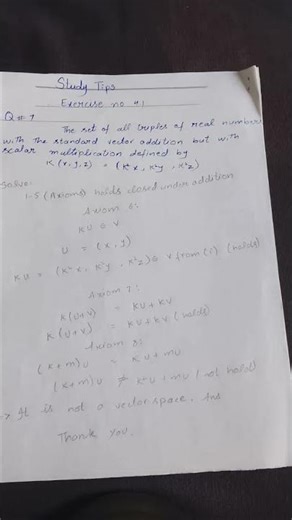 Study Tips
Exercise no #1
Q#1
The set of all triples of real number
with the standard vector addition but with
scalar multiplication defined by
K(x,y,z) = (K²x, K²y, K²z)
Solve:
1-5 (Axioms) holds closed under addition
Axiom 6:
KU ∈ V
U = (x, y)
KU = (K²x, K²y, K²z) ∈ V from (1) (holds)
Axiom 7:
K(U+V) = KU + KV
K(U+V) = KU + KV (holds)
Axiom 8:
(K+m)U = KU + mU
(K+m)U ≠ K²U + mU (not hold)
=> It is not a vector space. Ans
Thank You.